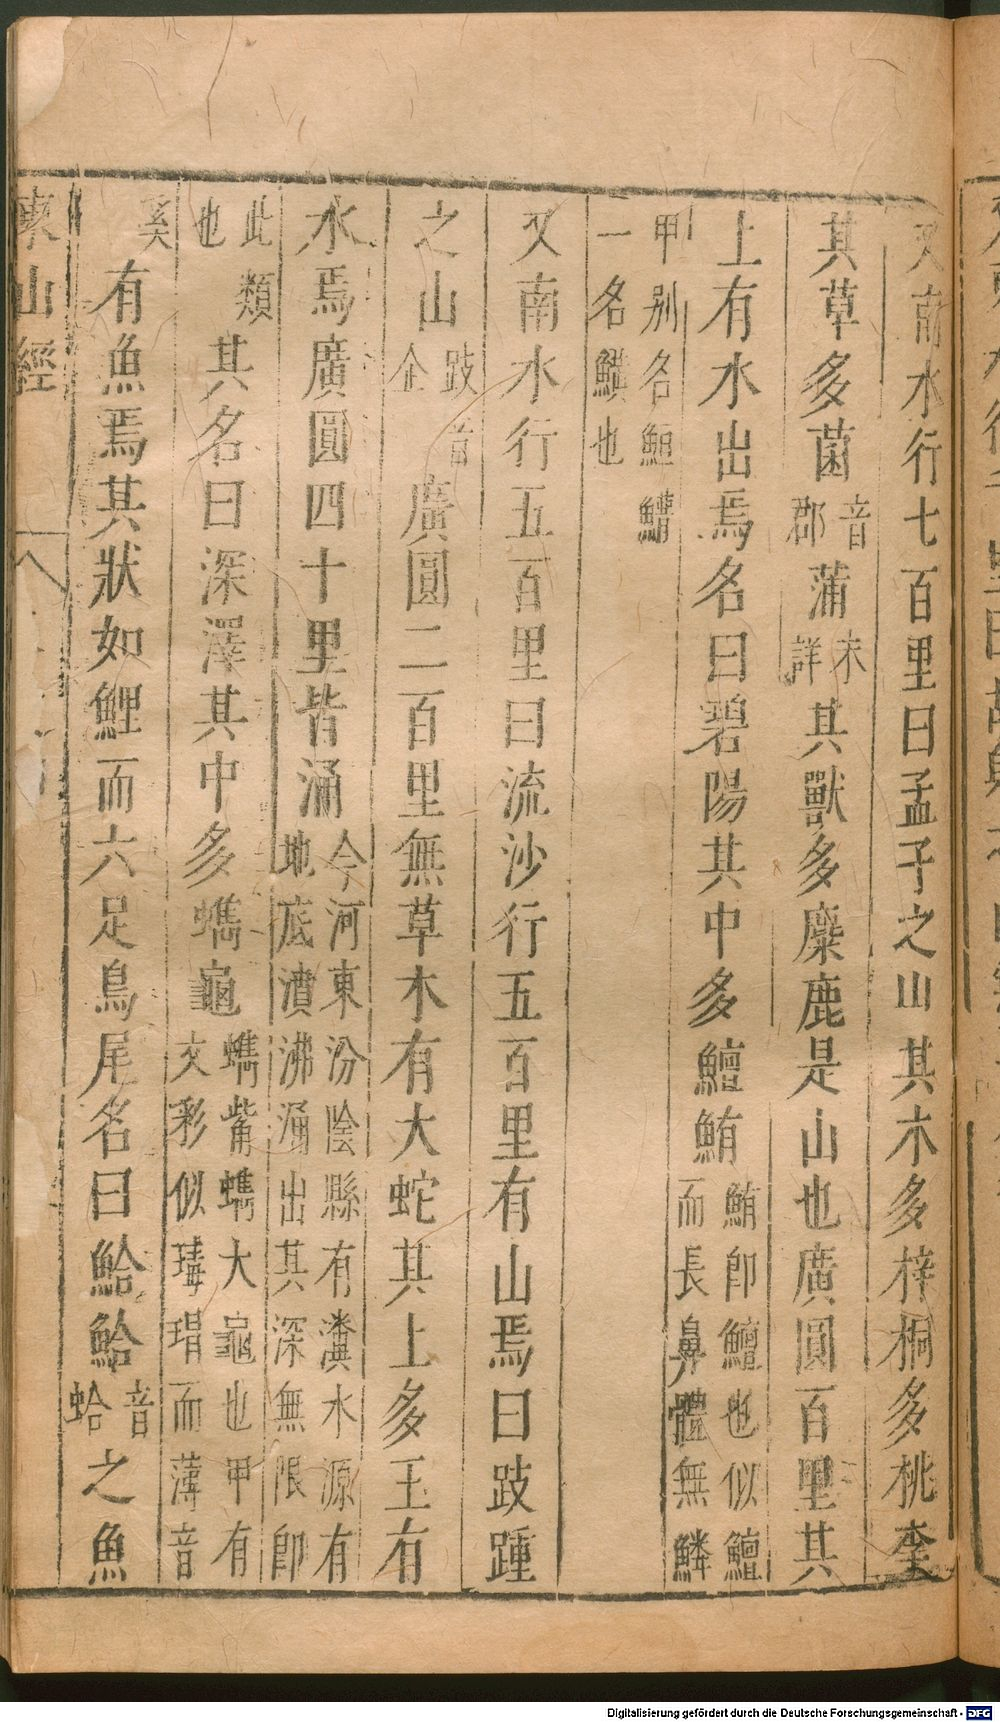 又南水行七百里曰孟子之山其木多梓桐多桃李
其草多菌音郡蒲未詳其獸多麋鹿是山也廣圓百里其
上有水出焉名曰碧陽其中多鱣鮪鮪卽鱣也似鱣而長鼻體無鱗
甲别名䱭䲛一名鱑也
又南水行五百里曰流沙行五百里有山焉曰跂踵
之山跂音企廣圓二百里無草木有大蛇其上多玉有
水焉廣圓四十里皆涌今河東汾陰縣有瀵水源有地底濆沸涌出其深無限卽
此類也其名曰深澤其中多蠵龜蠵觜蠵大龜也甲有文彩似瑇瑁而薄音
奚有魚焉其狀如鯉而六足鳥尾名曰鮯鮯音蛤之魚
東山經
Digitalisierung gefördert durch die Deutsche Forschungsgemeinschaft - DFG